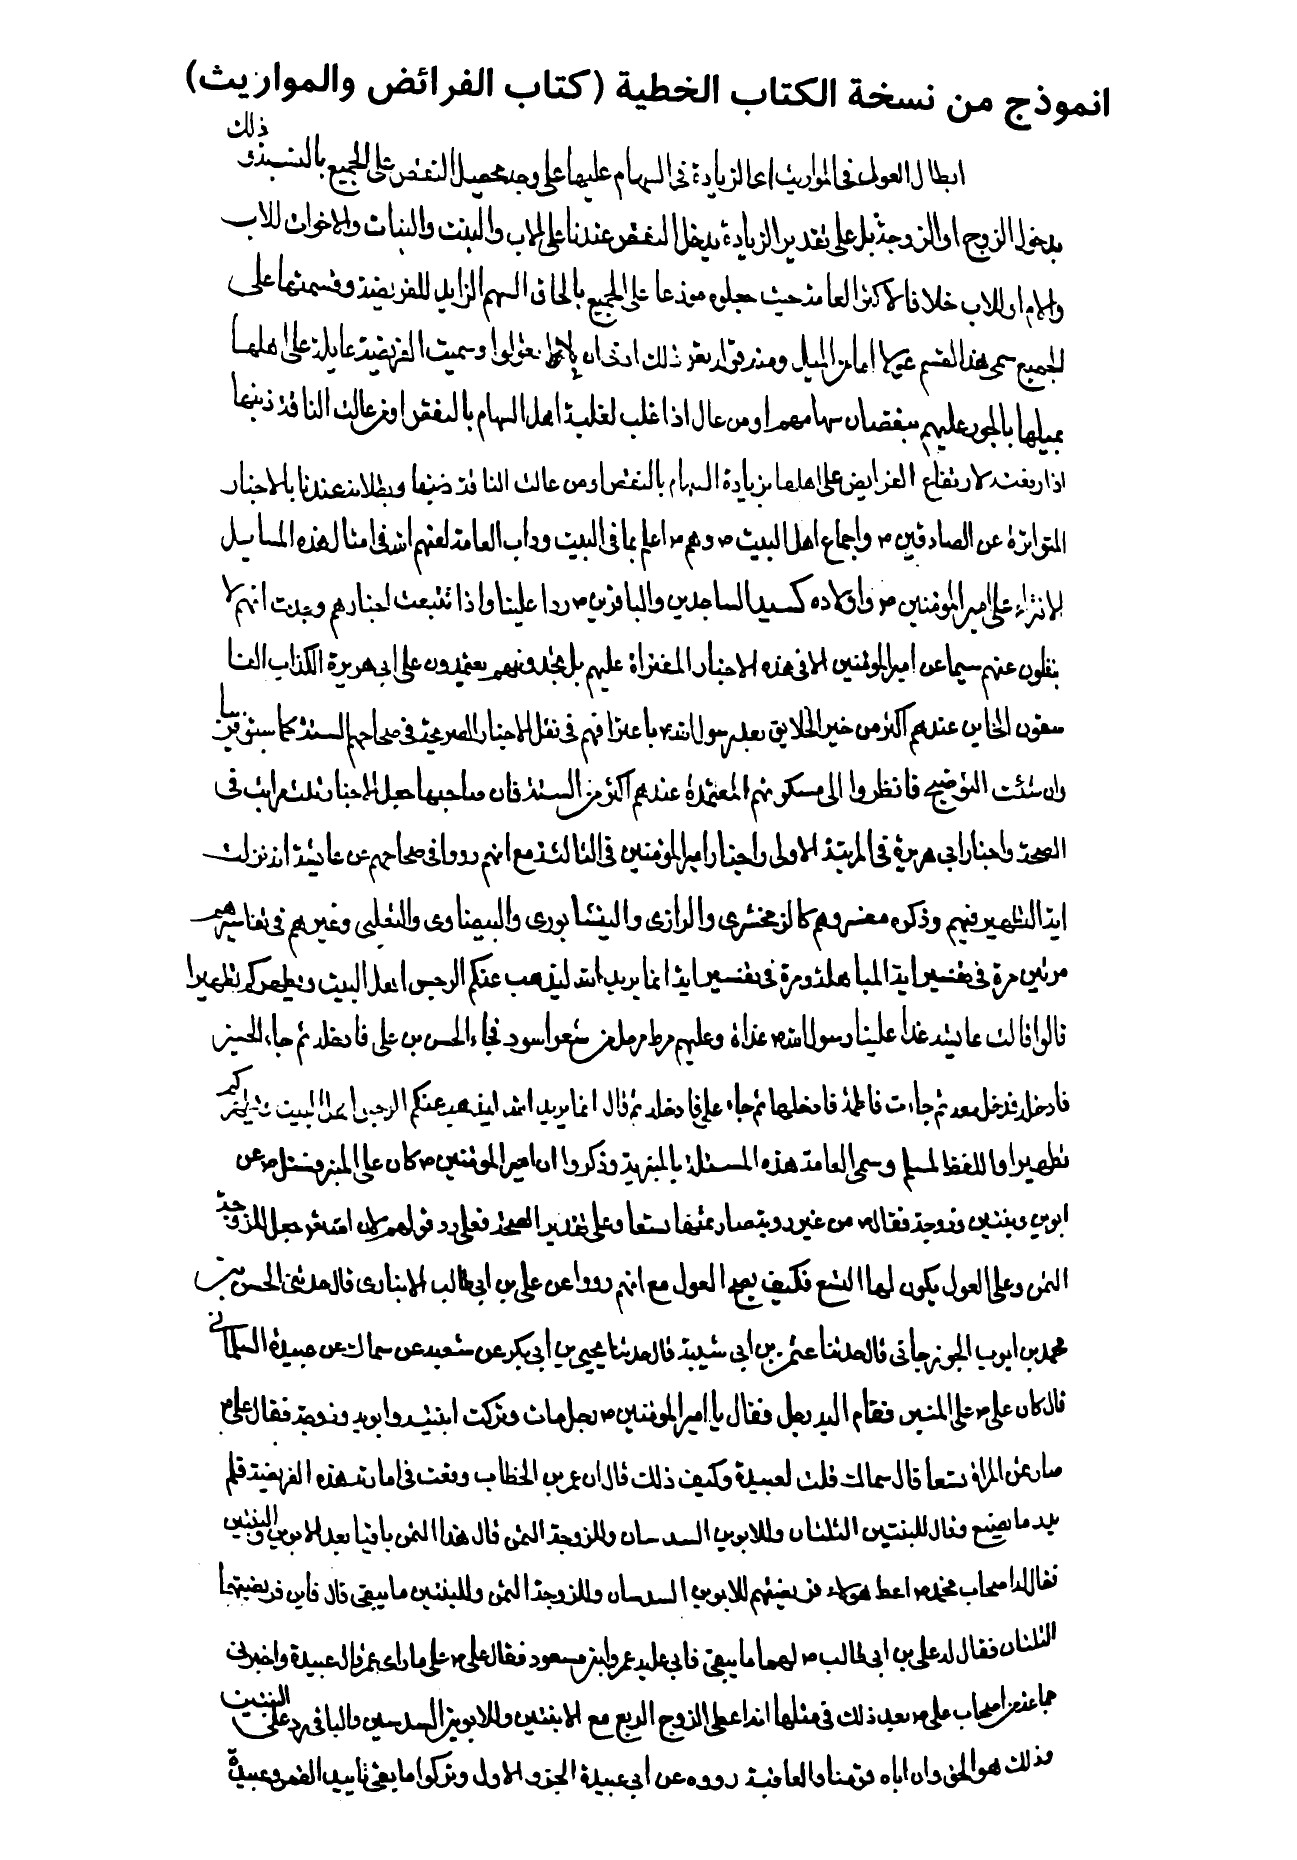 انموذج من نسخة الكتاب الخطية (كتاب الفرائض والمواريث)
ابطال العول فى المواريث اى الزيادة فى السهام عليها على وجه يحصل النقص على الجميع بالنسبة وذلك
بدخول الزوج او الزوجة بل على تقدير الزيادة يدخل النقص عندنا على الاب والبنت والبنات والاخوات للاب
والام او للاب خلافا لاكثر العامة حيث جعلوه موزعا على الجميع بالحاق السهم الزايد للفريضة وقسمتها على
الجميع سمى هذا القسم عولا اما من الميل ومنه قوله تعالى ذلك ادنى ان لا تعولوا وسميت الفريضة عايلة على اهلها
بميلها بالجور عليهم بنقصان سهامهم او من عال اذا غلب لغلبة اهل السهام بالنقص او من عالت الناقة ذنبها
اذا رفعته لارتفاع الفرايض على اهلها بزيادة السهام بالنقص او من عالت الناقة ذنبها وبطلانه عندنا بالاخبار
المتواترة عن الصادقين ع واجماع اهل البيت ع وهم ع اعلم بما فى البيت وداب العامة لعنهم الله فى امثال هذه المسايل
الافتراء على امير المؤمنين ع واولاده كسيد الساجدين والباقرين ع ردا علينا واذا تتبعت اخبارهم وجدت انهم لا
ينقلون عنهم سيما عن امير المؤمنين الا فى هذه الاخبار المفتراة عليهم بل تجدونهم يعتمدون على ابى هريرة الكذاب
الخاين عندهم اكثر من خير الخلايق بعد رسول الله ص باعترافهم فى نقل الاخبار الصريحة فى صحاحهم الستة كما سبق قريبا
وان شئت التوضيح فانظروا الى مسكوتهم المعتمدة عندهم اكثر من الستة فان صاحبها جعل الاخبار ثلث مراتب فى
الصحة واخبار ابى هريرة فى المرتبة الاولى واخبار امير المؤمنين فى الثالثة مع انهم رووا فى صحاحهم عن عايشة انه نزلت
اية التطهير فيهم وذكره مفسروهم كالزمخشرى والرازى والنيشابورى والبيضاوى والثعلبى وغيرهم فى تفاسيرهم
مرتين مرة فى تفسير اية المباهلة ومرة فى تفسير اية انما يريد الله ليذهب عنكم الرجس اهل البيت ويطهركم تطهيرا
قالوا قالت عايشة غدا علينا رسول الله ص غداة وعليهم مرط مرحل من شعر اسود فجاء الحسن بن على فادخله ثم جاء الحسين
فادخله فدخل معه ثم جاءت فاطمة فادخلها ثم جاء على فادخله ثم قال انما يريد الله ليذهب عنكم الرجس اهل البيت ويطهركم
تطهيرا واللفظ لمسلم وسمى العامة هذه المسئلة بالمنبرية وذكروا ان امير المؤمنين ع كان على المنبر فسئل ع عن
ابوين وبنتين وزوجة فقال ع من غير روية صار ثمنها تسعا وعلى تقدير الصحة فعلى رد قولهم لان الله تعالى جعل للزوجة
الثمن وعلى العول يكون لها التسع فكيف يصح العول مع انهم رووا عن على بن ابى طالب الانبارى قال حدثنى الحسن بن
محمد بن ايوب الجوزجانى قال حدثنا عثمن بن ابى شيبة قال حدثنا يحيى بن ابى بكر عن شعبة عن سماك عن عبيدة السلمانى
قال كان على ع على المنبر فقام اليه رجل فقال يا امير المؤمنين ع رجل مات وترك ابنتيه وابويه وزوجة فقال على ع
صار ثمن المراة تسعا قال سماك قلت لعبيدة وكيف ذلك قال ان عمر بن الخطاب وقعت فى امارته هذه الفريضة فلم
يدر ما يصنع وقال للبنتين الثلثان وللابوين السدسان وللزوجة الثمن قال هذا الثمن باقيا بعد الابوين والبنتين
فقال له اصحاب محمد ص اعط هؤلاء فريضتهم للابوين السدسان وللزوجة الثمن وللبنتين ما يبقى قال فاين فريضتهما
الثلثان فقال له على بن ابى طالب ع لهما ما يبقى فابى عليه عمر وابن مسعود فقال على ع على ما راى عمر قال عبيدة واخبرنى
جماعة من اصحاب على ع بعد ذلك فى مثلها انه اعطى الزوج الربع مع الابنتين وللابوين السدسين والباقى رد على البنتين
وذلك هو الحق وان اباه قومنا والعامة رووه عن ابى عبيدة الجزو الاول وتركوا ما بقى